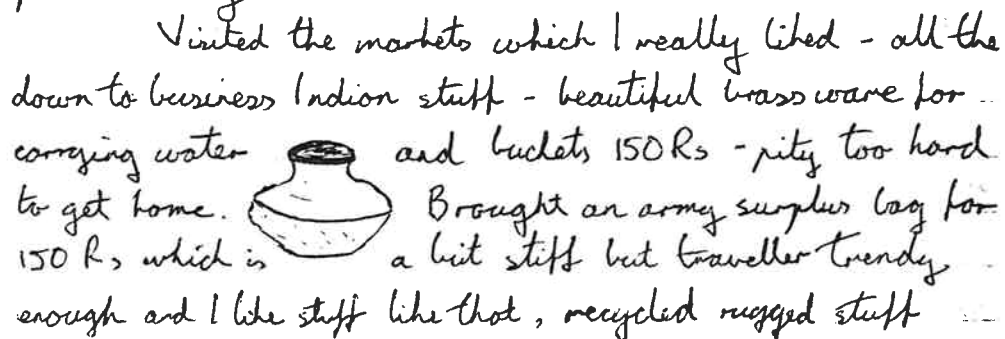 Visited the markets which I really liked - all the
down to business Indian stuff - beautiful brassware for
carrying water and buckets 150 Rs - pity too hard
to get home. Brought an army surplus bag for
150 Rs which is a bit stiff but traveller trendy
enough and I like stuff like that, recycled rugged stuff